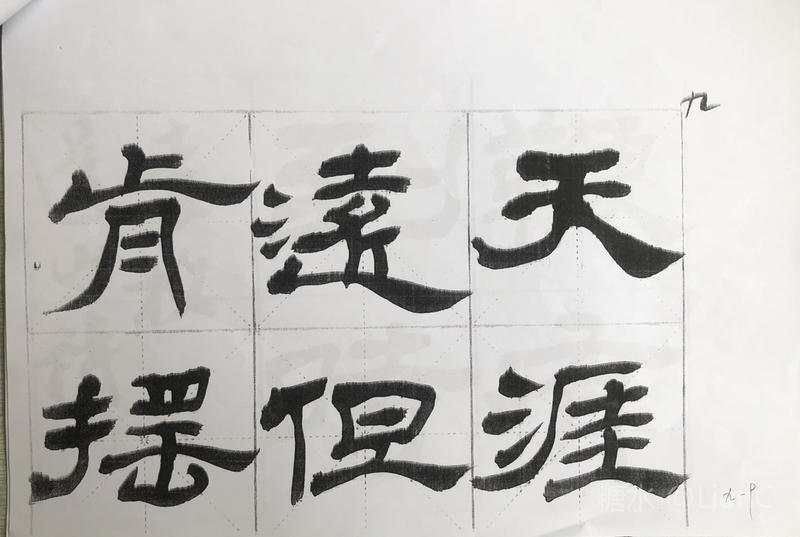 天涯
遠但
肯摇
九
九-P
糖水